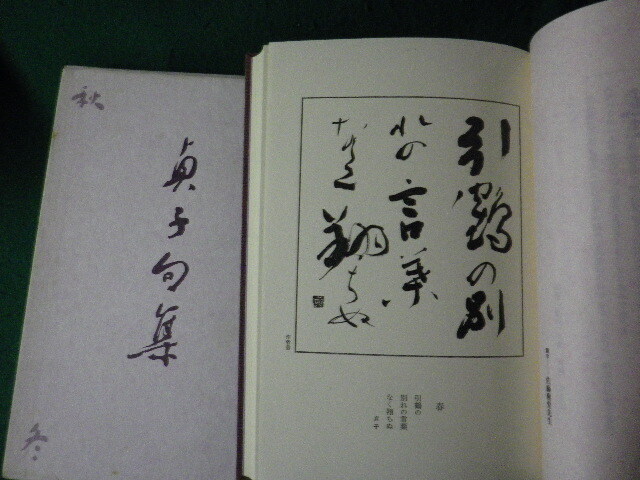 秋
貞子句集
冬
引鶴の別
れの言葉
なく翔ちぬ
春
引鶴の
別れの言葉
なく翔ちぬ
貞子